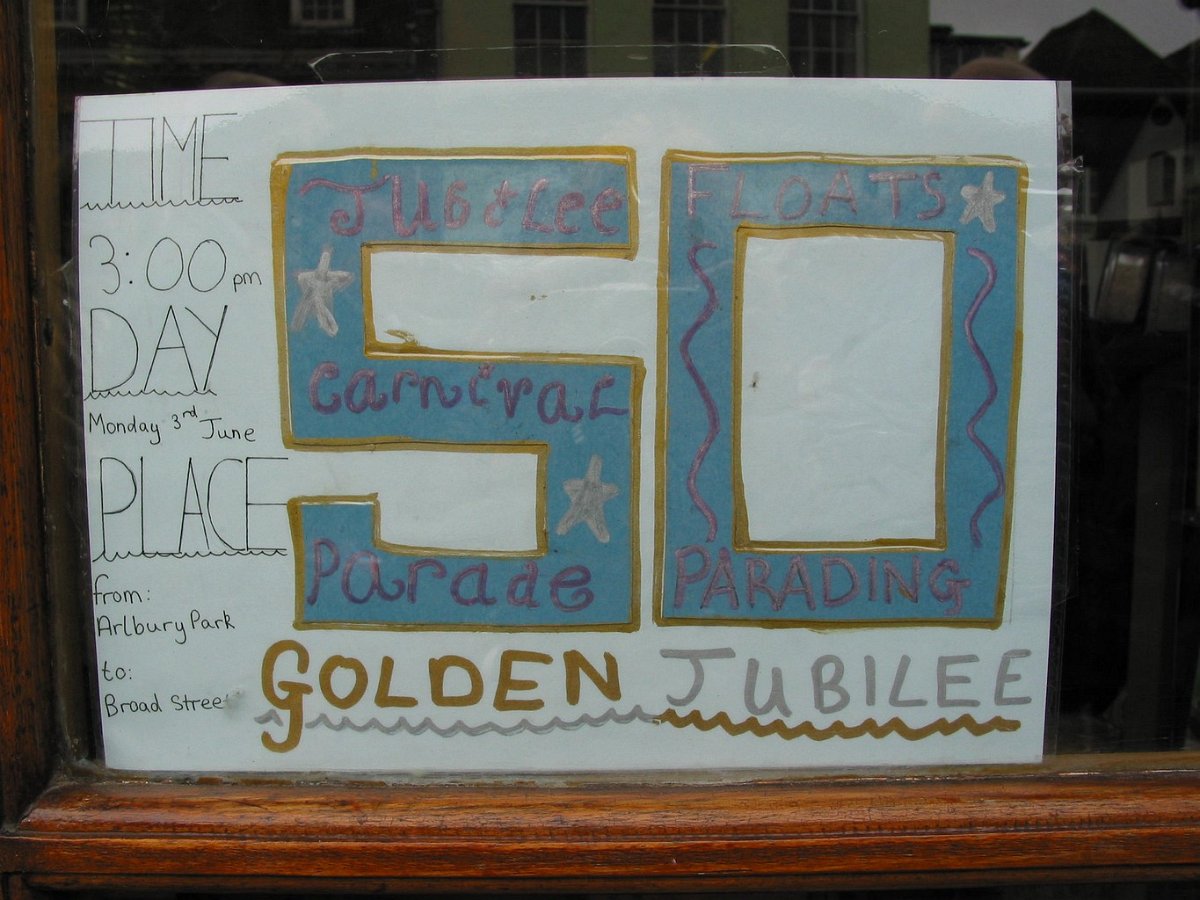 TIME
3:00pm
DAY
Monday 3rd June
PLACE
from:
Arlbury Park
to:
Broad Street
50
Jubilee
Carnival
Parade
FLOATS
PARADING
GOLDEN JUBILEE